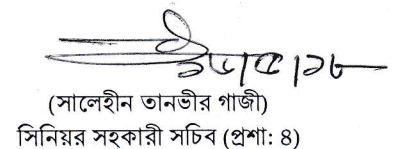 (সালেহীন তানভীর গাজী)
সিনিয়র সহকারী সচিব (প্রশা: ৪)